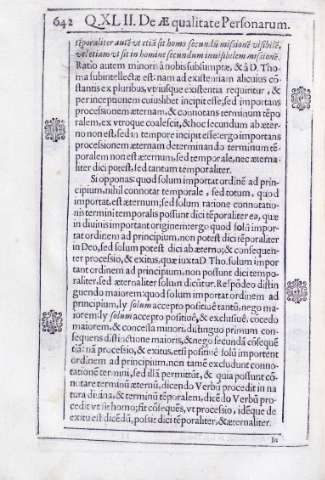 642 Q. XLII. De Æqualitate Personarum.
tẽporaliter autẽ vt etiã sit homo secundũ missionẽ visibilẽ,
vel etiam vt sit in homine secundum inuisibilem missionẽ.
Ratio autem minoris à nobis subsumptæ, & à D. Tho-
ma subintellectæ est: nam ad existentiam alicuius cõ-
stantis ex pluribus, vtriusque existentia requiritur, &
per inceptionem cuiuslibet incipit esse, sed importans
processionem æternam, & connotans terminum tẽpo
ralem, ex vtroque coalescit, & hoc secundum ab æter-
no non est, sed in tempore incipit esse: ergo importans
processionem æternam determinando terminum tẽ-
poralem non est æternum, sed temporale, nec æterna-
liter dici potest, sed tantum temporaliter.
Si opponas: quod solum importat ordinẽ ad prin-
cipium, nihil connotat temporale, sed totum, quod
importat, est æternum; sed solum ratione connotatio-
nis termini temporalis possunt dici tẽporaliter ea, quæ
in diuinis important originem: ergo quod solũ impor-
tat ordinem ad principium, non potest dici tẽporaliter
in Deo, sed solum potest dici ab æterno; & consequen-
ter processio, & exitus, quæ iuxta D. Tho. solum impor
tant ordinem ad principium, non possunt dici tempo-
raliter, sed æternaliter solum dicũtur. Respõdeo distin
guendo maiorem: quod solum importat ordinem ad
principium, ly solum accepto positiuè tantũ, nego ma-
iorem, ly solum accepto positiuè, & exclusiuè, cõcedo
maiorem, & concessa minori, distinguo primum con-
sequens distinctione maioris, & nego secundã cõsequẽ
tiã: nã processio, & exitus, etsi positiuè solũ importent
ordinem ad principium, non tamẽ excludunt conno-
tationẽ termini, sed illã permittũt, & quia possunt cõ-
notare terminũ æternũ, dicendo Verbũ procedit in na
tura diuina, & terminũ tẽporalem, dicẽdo Verbũ pro-
cedit vt sit homo; fit cõsequẽs, vt processio, idẽque de
exitu est dicẽdũ, possit dici tẽporaliter, & æternaliter.